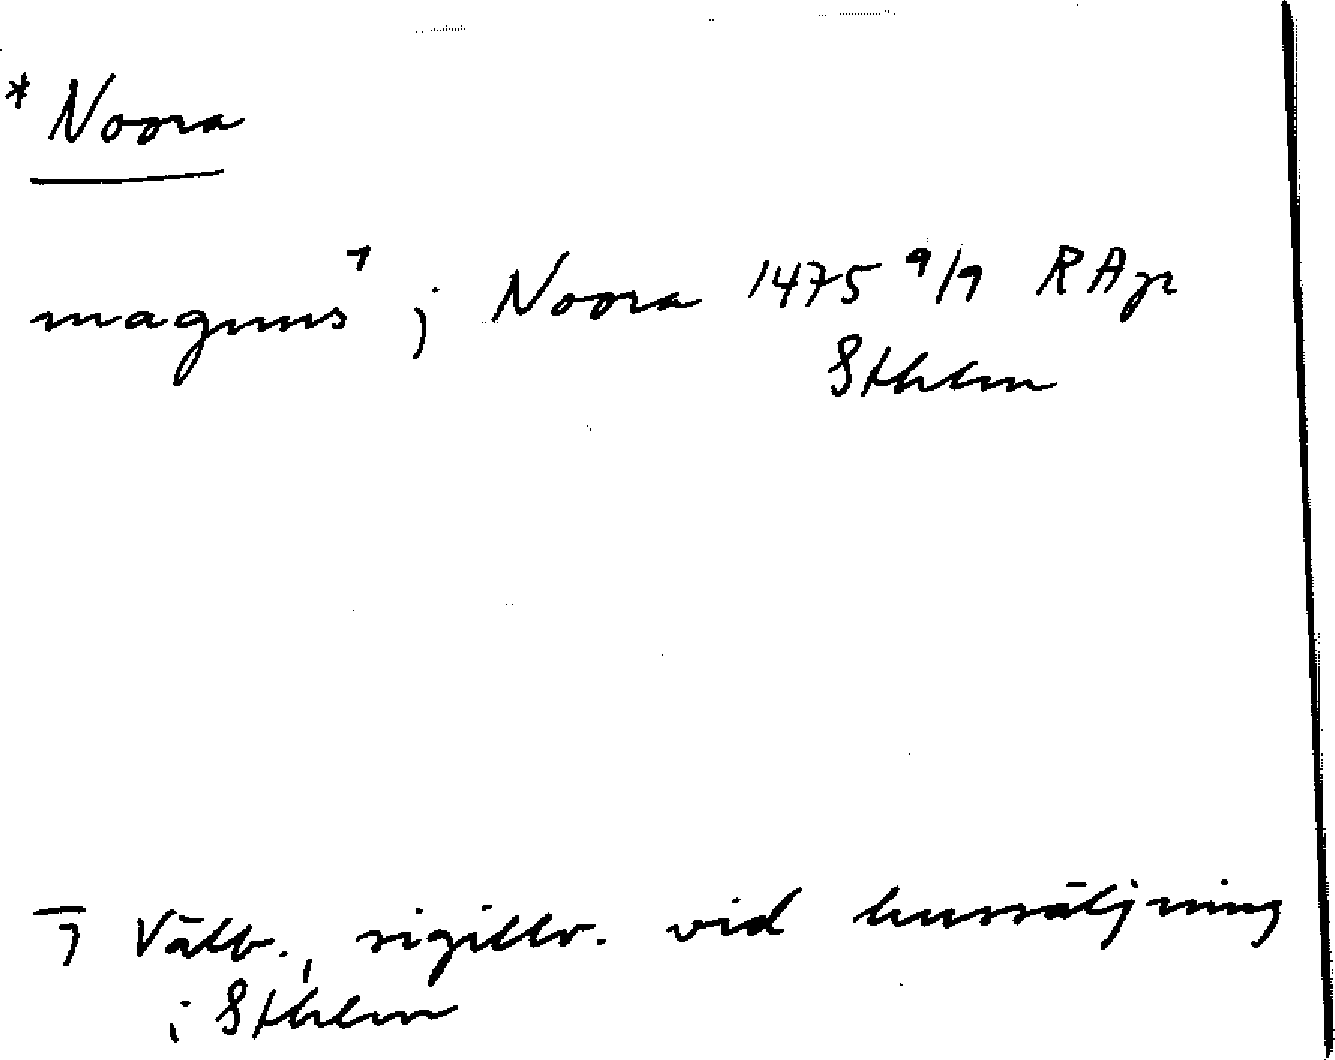 * Noora
magnus ⁊ j Noora 1475 9/9 RAp
Sthlm
⁊ Välb., sigillv. vid hussäljning
i Sthlm